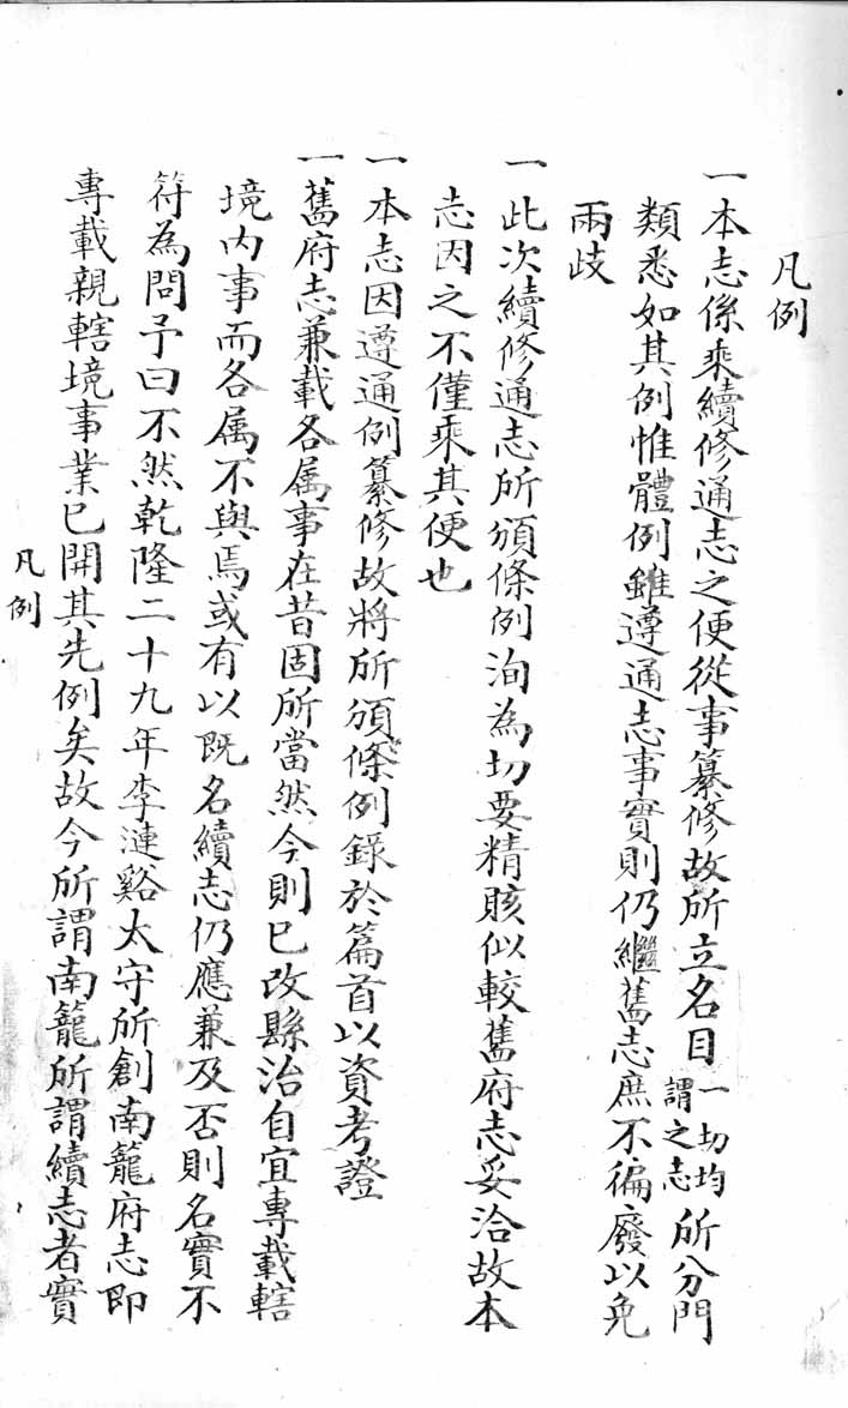 凡例
一本志係乘續修通志之便從事纂修故所立名目一切均謂之志所分門
類悉如其例惟體例雖遵通志事實則仍繼舊志庶不偏廢以免
兩歧
一此次續修通志所頒條例洵為切要精賅似較舊府志妥洽故本
志因之不僅乘其便也
一本志因遵通例纂修故將所頒條例錄於篇首以資考證
一舊府志兼載各属事在昔固所當然今則已改縣治自宜專載轄
境内事而各属不與焉或有以既名續志仍應兼及否則名實不
符為問予曰不然乾隆二十九年李漣谿太守所創南籠府志即
專載親轄境事業已開其先例矣故今所謂南籠所謂續志者實
凡例